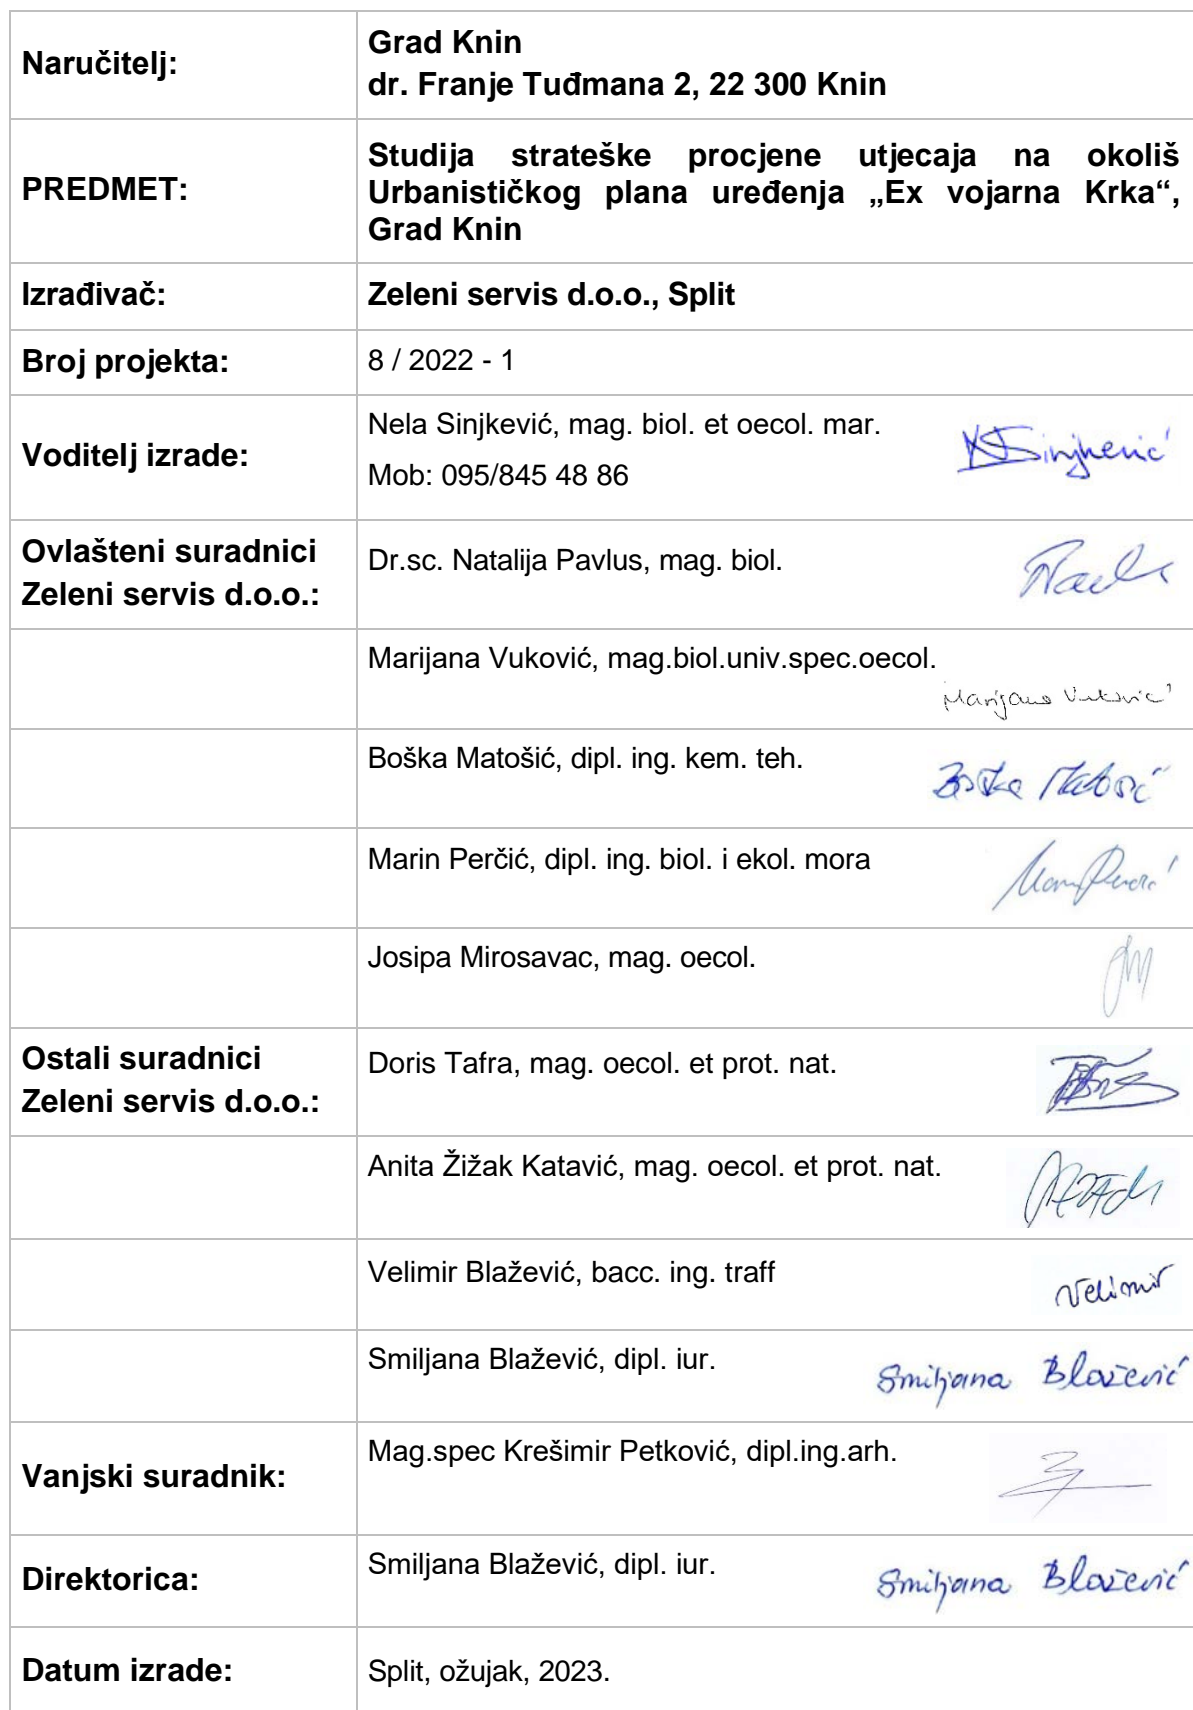 Naručitelj:
Grad Knin
dr. Franje Tuđmana 2, 22 300 Knin
PREDMET:
Studija strateške procjene utjecaja na okoliš
Urbanističkog plana uređenja „Ex vojarna Krka“,
Grad Knin
Izrađivač:
Zeleni servis d.o.o., Split
Broj projekta:
8 / 2022 - 1
Voditelj izrade:
Nela Sinjkević, mag. biol. et oecol. mar.
Mob: 095/845 48 86
Ovlašteni suradnici
Zeleni servis d.o.o.:
Dr.sc. Natalija Pavlus, mag. biol.
Marijana Vuković, mag.biol.univ.spec.oecol.
Marijana Vuković
Boška Matošić, dipl. ing. kem. teh.
Boška Matošić
Marin Perčić, dipl. ing. biol. i ekol. mora
Josipa Mirosavac, mag. oecol.
Ostali suradnici
Zeleni servis d.o.o.:
Doris Tafra, mag. oecol. et prot. nat.
Anita Žižak Katavić, mag. oecol. et prot. nat.
Velimir Blažević, bacc. ing. traff
Velimir
Smiljana Blažević, dipl. iur.
Smiljana Blažević
Vanjski suradnik:
Mag.spec Krešimir Petković, dipl.ing.arh.
Direktorica:
Smiljana Blažević, dipl. iur.
Smiljana Blažević
Datum izrade:
Split, ožujak, 2023.